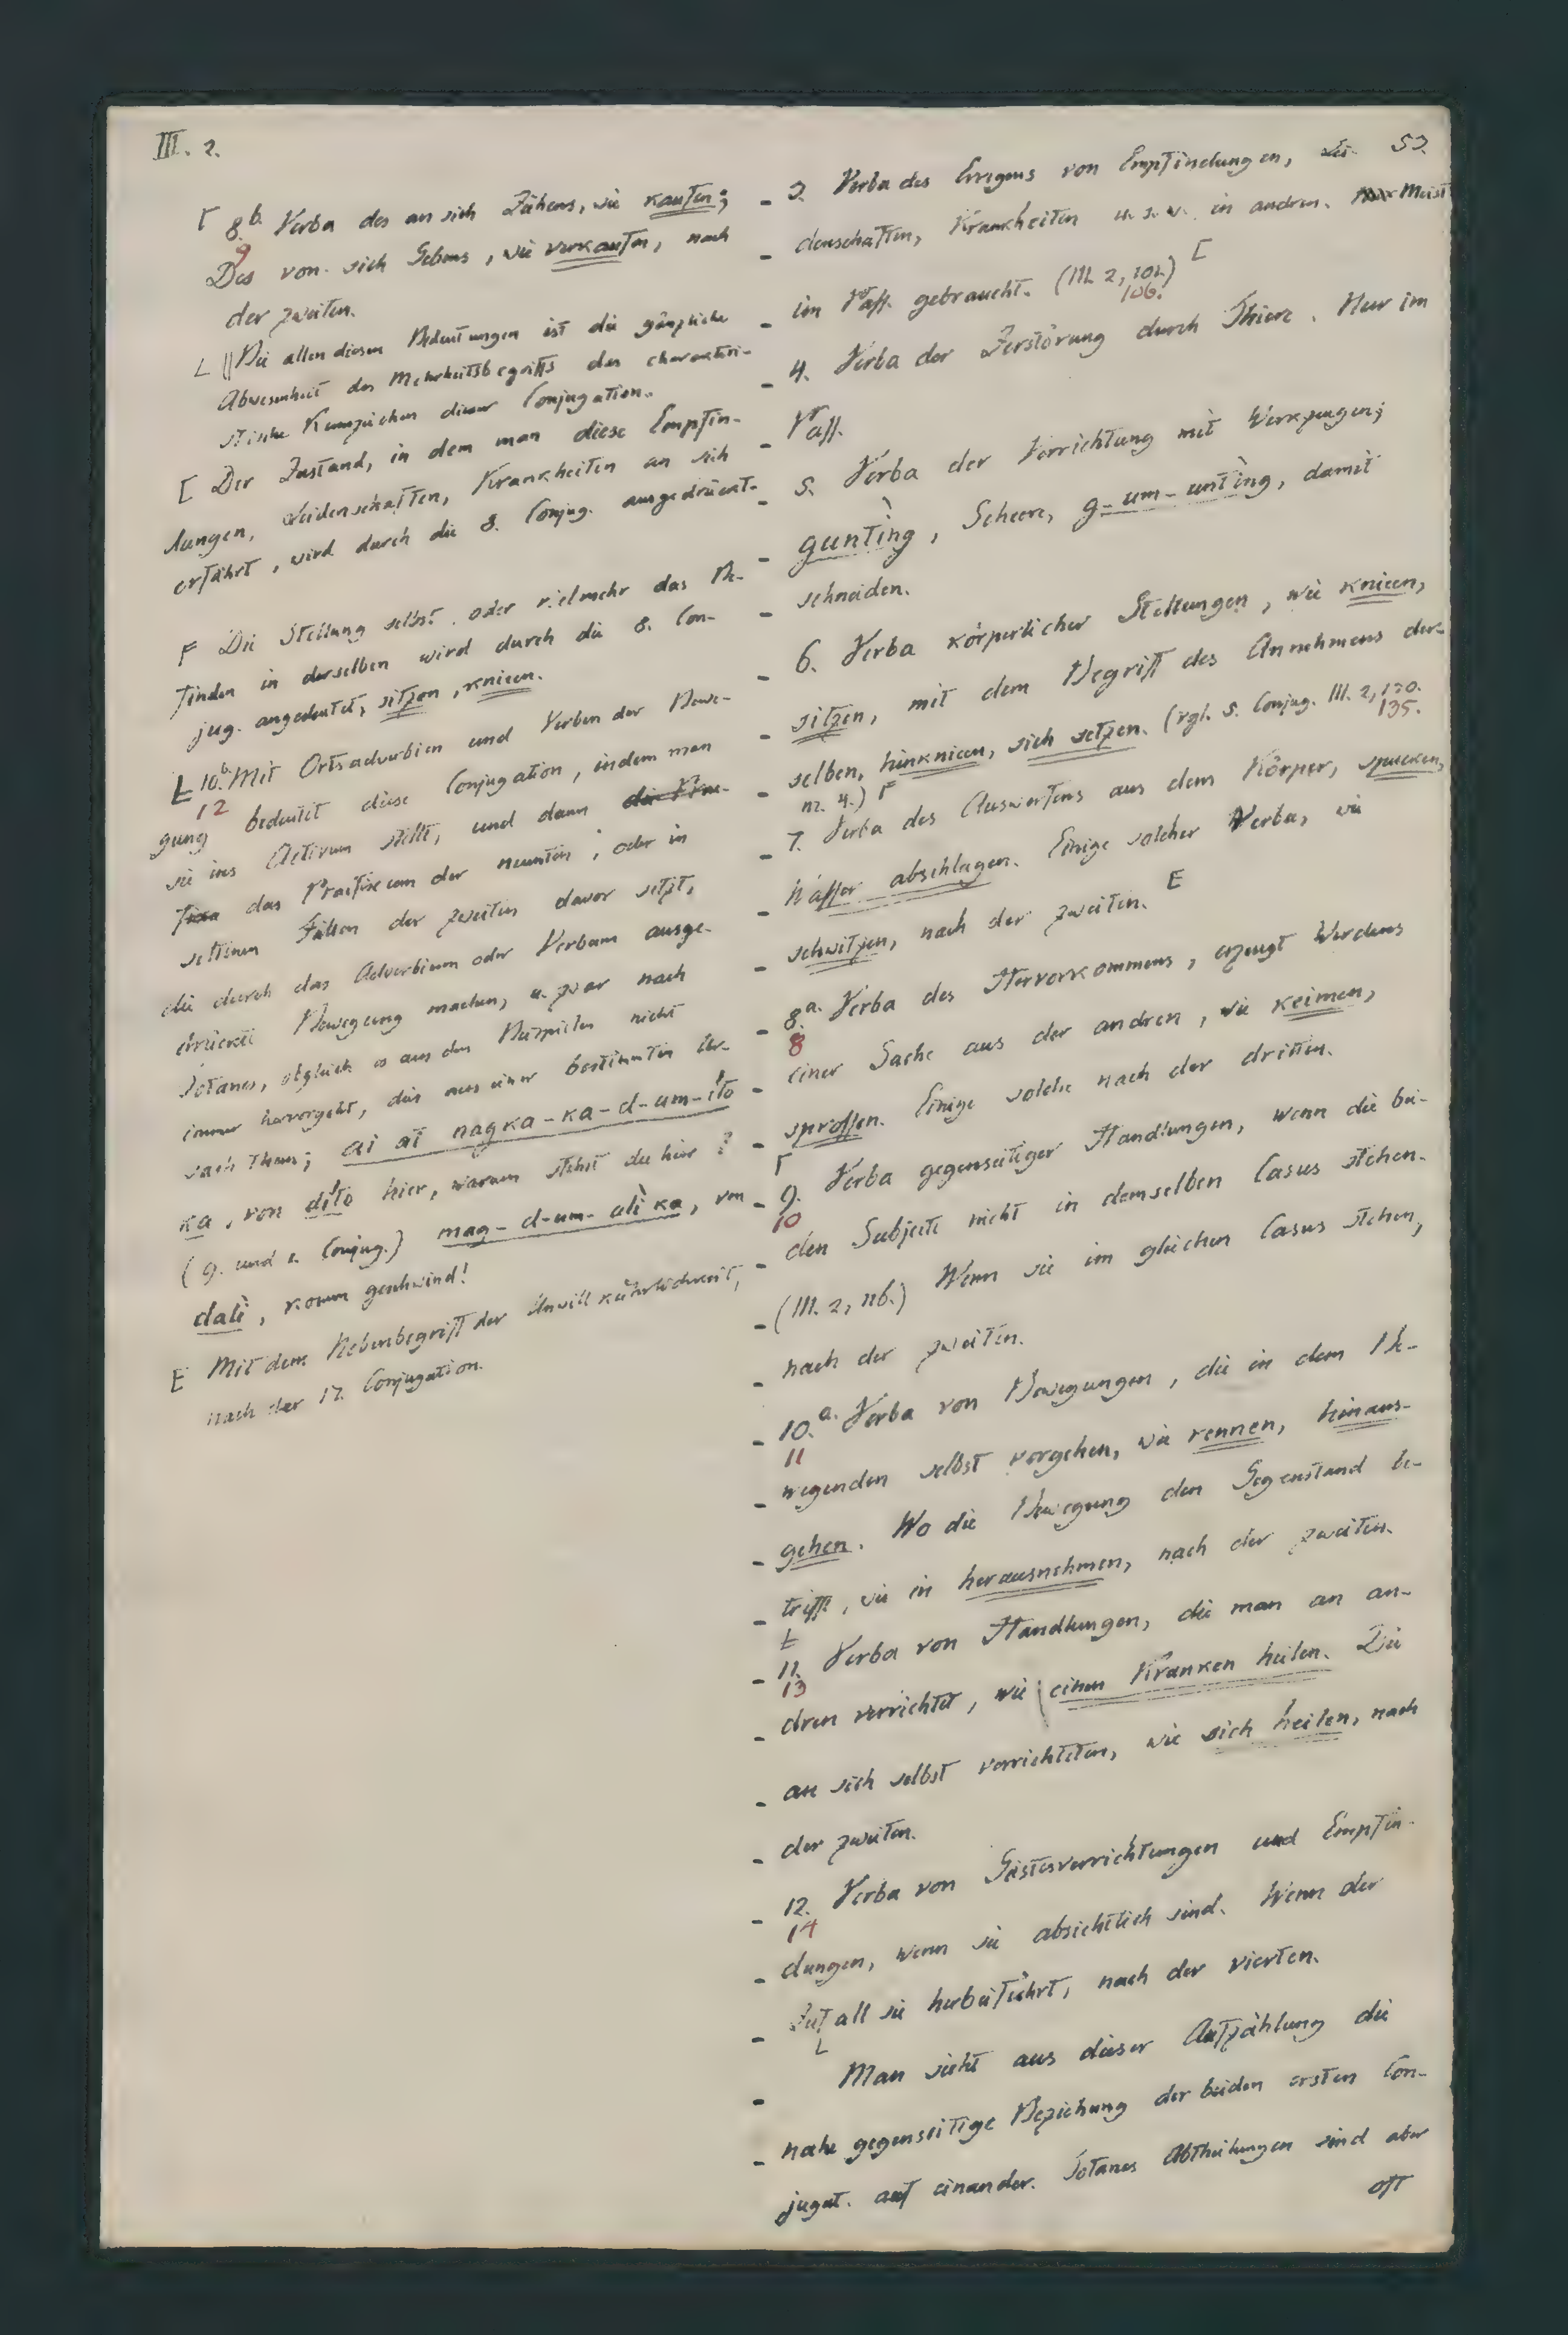 III. 2.
53.
⌈ 8.b. Verba des an sich Ziehens, wie kaufen;
9
Des von sich Gebens, wie verkaufen, nach
der zweiten.
∟ || Bei allen diesen Bedeutungen ist die gänzliche
Abwesenheit des Mehrheitsbegriffs das charakteri-
stische Kennzeichen dieser Conjugation.
[ Der Zustand, in dem man diese Empfin-
dungen, Leidenschaften, Krankheiten an sich
erfährt, wird durch die 8. Conjug. ausgedrückt.
F Die Stellung selbst, oder vielmehr das Be-
finden in derselben wird durch die 8. Con-
jug. angedeutet, sitzen, knieen.
Ł 10.b. Mit Ortsadverbien und Verben der Bewe-
12
gung bedeutet diese Conjugation, indem man
sie ins Activum stellt, und dann die Prae-
fixa das Praefixum der neunten, oder in
seltenen Fällen der zweiten davor setzt,
die durch das Adverbium oder Verbum ausge-
drückte Bewegung machen, u. zwar nach
Totanes, obgleich es aus den Beispielen nicht
immer hervorgeht, dies aus einer bestimmten Ur-
sach thun; ai at nagka-ka-d-um-ito
ka, von dito hier, warum stehst du hier?
(9. und 1. Conjug.) mag-d-um-ali ka, von
dali, komm geschwind!
E Mit dem Nebenbegriff der Unwillkührlichkeit,
nach der 17. Conjugation.
3. Verba des Erregens von Empfindungen, Lei-
denschaften, Krankheiten u. s. w. in andren. Meist
im Pass. gebraucht. (III. 2, 102.) [
106.
4. Verba der Zerstörung durch Thiere. Nur im
Pass.
5. Verba der Verrichtung mit Werkzeugen;
gunting, Scheere, g-um-unting, damit
schneiden.
6. Verba körperlicher Stellungen, wie knieen,
sitzen, mit dem Begriff des Annehmens der-
selben, hinknieen, sich setzen. (vgl. 5. Conjug. III. 2, 130.
135.
nr. 4.) F
7. Verba des Auswerfens aus dem Körper, spucken,
Wasser abschlagen. Einige solcher Verba, wie
schwitzen, nach der zweiten. E
8.a. Verba des Hervorkommens, erzeugt Werdens
8
einer Sache aus der andren, wie keimen,
sprossen. Einige solche nach der dritten.
⌈
9. Verba gegenseitiger Handlungen, wenn die bei-
10
den Subjecte nicht in demselben Casus stehen.
(III. 2, 116.) Wenn sie im gleichen Casus stehen,
nach der zweiten.
10.a. Verba von Bewegungen, die in dem Be-
11
wegenden selbst vorgehen, wie rennen, hinaus-
gehen. Wo die Bewegung den Gegenstand be-
trifft, wie in herausnehmen, nach der zweiten.
Ł
11. Verba von Handlungen, die man an an-
13
dren verrichtet, wie einen Kranken heilen. Die
an sich selbst verrichteten, wie sich heilen, nach
der zweiten.
12. Verba von Geistesverrichtungen und Empfin-
14
dungen, wenn sie absichtlich sind. Wenn der
Zufall sie herbeiführt, nach der vierten.
∟
Man sieht aus dieser Aufzählung die
nahe gegenseitige Beziehung der beiden ersten Con-
jugat. auf einander. Totanes Abtheilungen sind aber
oft